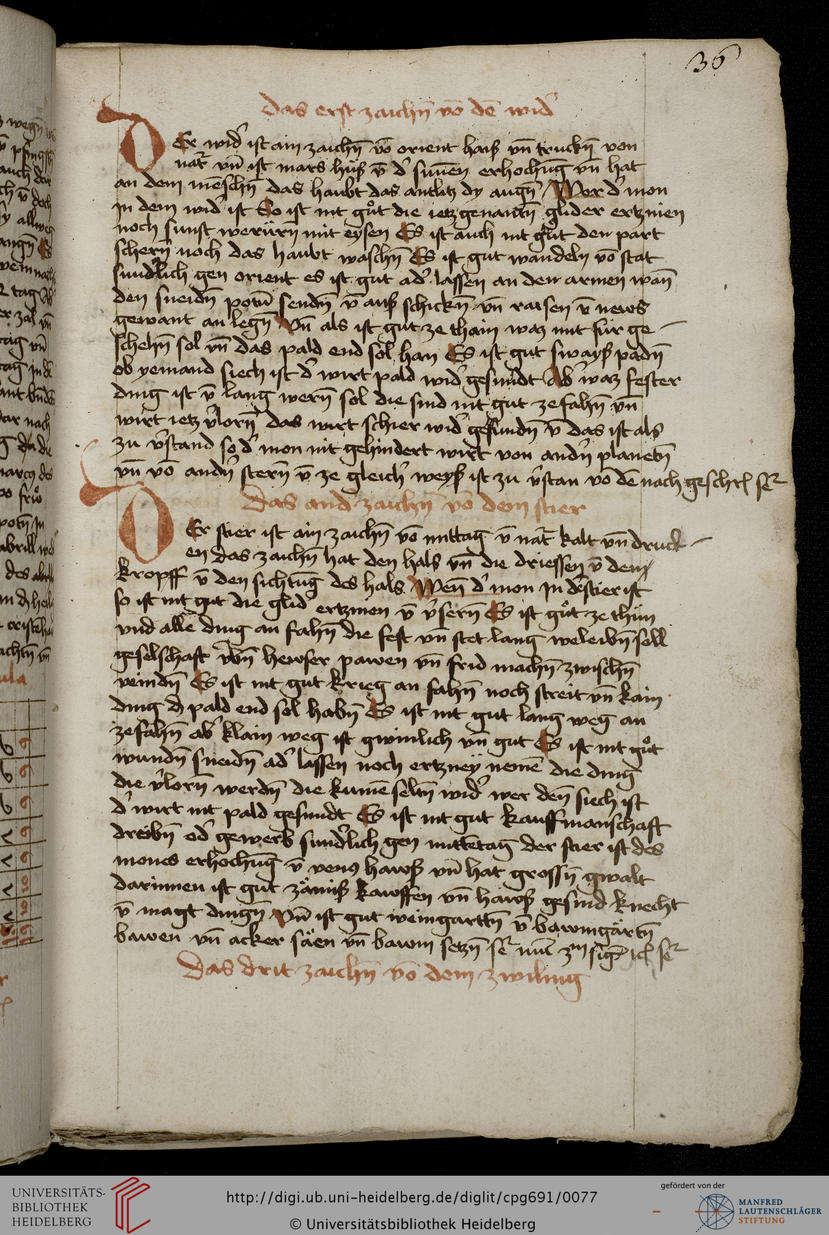 36
das erst zaichn̄ vō dē wid'
Er wid' ist ain zaichn̄ vō orient haiß vn̄ truckn̄ von
nat' vn̄ ist mars huß v̄ d' sunen erhochūg vn̄ hat
an dem mēschn̄ das haubt das antlitz dy augn̄ Wer d' mon
in dem wid' ist So ist nit gůt die ietzgenantn̄ glider ertznien
noch sunst werürn̄ mit eysen Es ist auch nit gůt den part
schern̄ noch das haubt waschn̄ Es ist gut wandeln vō stat
sund'lich gen orient es ist gut ad' lassen an den armen wan̄
den sneidn̄ potn̄ sendn̄ v̄ auß schickn̄ vn̄ raisen v̄ news
gewant an legn̄ Vn̄ als ist gut ze thain waz mit für ge
schehn̄ sol vn̄ das pald end sol han Es ist gut swayß padn̄
ob yemand siech ist d' wirt pald wid' gesundt Ab' waz fester
ding ist v̄ lang wern̄ sol die sind nit gut ze fahn̄ vn̄
wirt ietz v'lorn̄ das wirt schier wid' gefundn̄ v̄ das ist als
zu v'stand so d' mon nit gehindert wirt von andn̄ planetn̄
vn̄ vō andn̄ stern̄ v̄ ze gleich' weyß ist zu v'stan vō dē nach
das and' zaichn̄ vō dem stier
Er stier ist ain zaichn̄ vō mittag v̄ nat' kalt vn̄ druck
en das zaichn̄ hat den hals vn̄ die driessen v̄ dem
kropff v̄ den sichtūg des hals Wen̄ d' mon in d' stier ist
so ist nit gut die glid' ertznien v̄ v'sern̄ Es ist gůt ze thun
vnd alle ding an fahn̄ die fest vn̄ stet lang weleibn̄ sell
geselschaft vbn̄ hewser pawen vn̄ frid machn̄ zwischn̄
veindn̄ Es ist nit gut krieg an fahn̄ noch streit vn̄ kain
ding d' pald end sol habn̄ Es ist nit gut lang weg an
ze fahn̄ ab' klain weg ist gwinlich vn̄ gut Es ist nit gůt
wundn̄ sneidn̄ ad' lassen noch ertzney nemē die ding
die v'lorn̄ werdn̄ die kumē seltn̄ wid' wer den̄ siech ist
d' wirt nit pald gesundt Es ist nit gut kauffmanschaft
dreibn̄ od' gewerb sund'lich gen mittētag der stier ist des
mones erhochūg v̄ venꝰ hawß vn̄ hat grossn̄ gwalt
darinnen ist gut zämiß kawffen vn̄ hawß gesind knecht
v̄ magt dingn̄ Vn̄ ist gut weingarttn̄ v̄ bawmgärtn̄
bawen vn̄ acker säen vn̄ bawm setzn̄
das drit zaichn̄ vō dem zwiling
UNIVERSITÄTS-
BIBLIOTHEK
HEIDELBERG
http://digi.ub.uni-heidelberg.de/diglit/cpg691/0077
© Universitätsbibliothek Heidelberg
gefördert von der
MANFRED
LAUTENSCHLÄGER
STIFTUNG